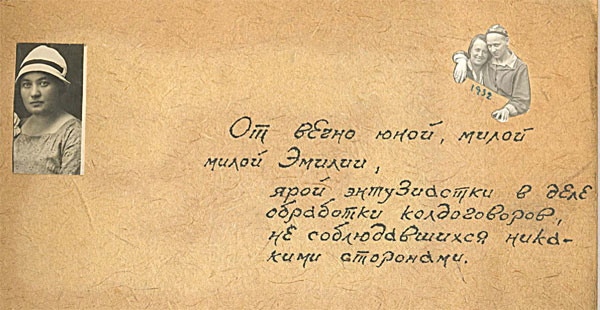 1932
От вечно юной, милой
милой Эмилии,
ярой энтузиастки в деле
обработки колдоговоров,
не соблюдавшихся ника-
кими сторонами.